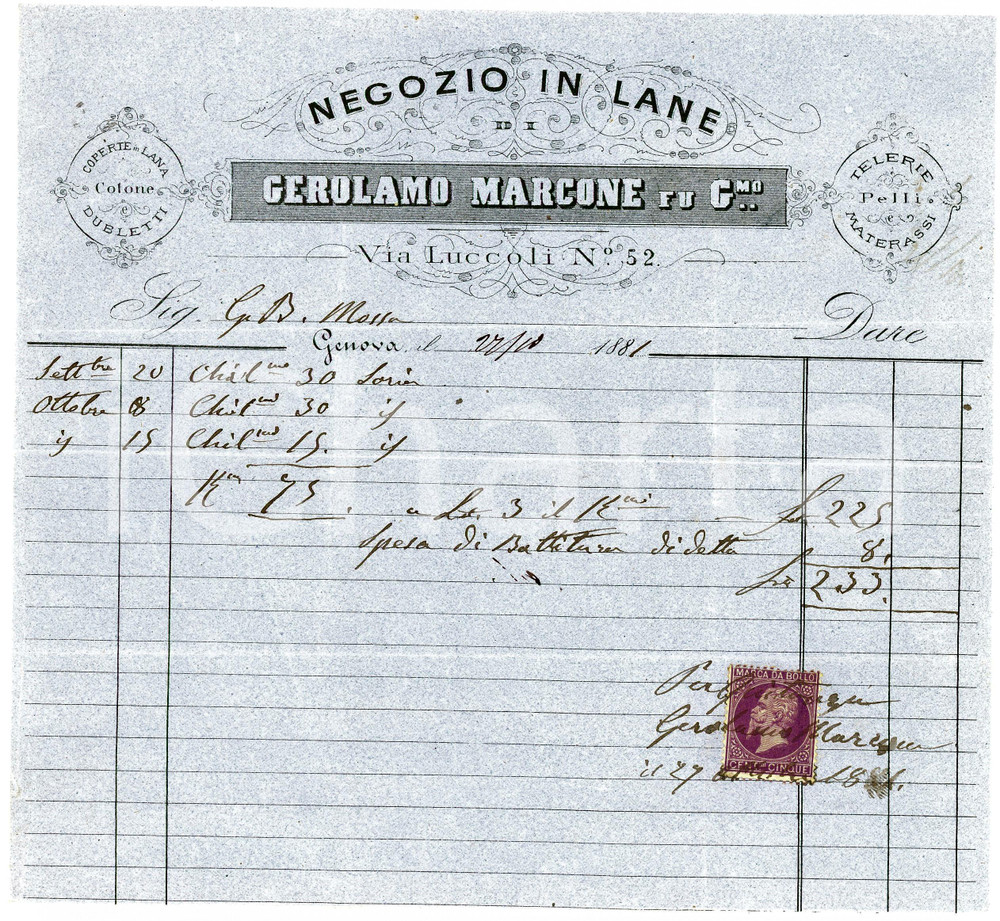 NEGOZIO IN LANE
DI
GEROLAMO MARCONE FU G.MO
Via Luccoli No. 52.
COPERTE in LANA
Cotone
e
DUBLETTI
TELERIE
Pelli
e
MATERASSI
Sig. G. B. Mossa Dare
Genova, il 27/10 1881
Settbre 20 Chil 30
Ottobre 8 Chil 30 id
id 15 Chil 15. id
K 75. a 3 il K 225
Spesa di Battitura di detta 8.
233.
MARCA DA BOLLO
CENT. CINQUE
Gerolamo Marcone
il 27 1881.